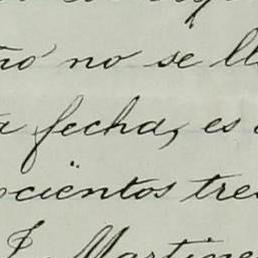 ño no se ll
a fecha, es
ocientos tre
J. Martine